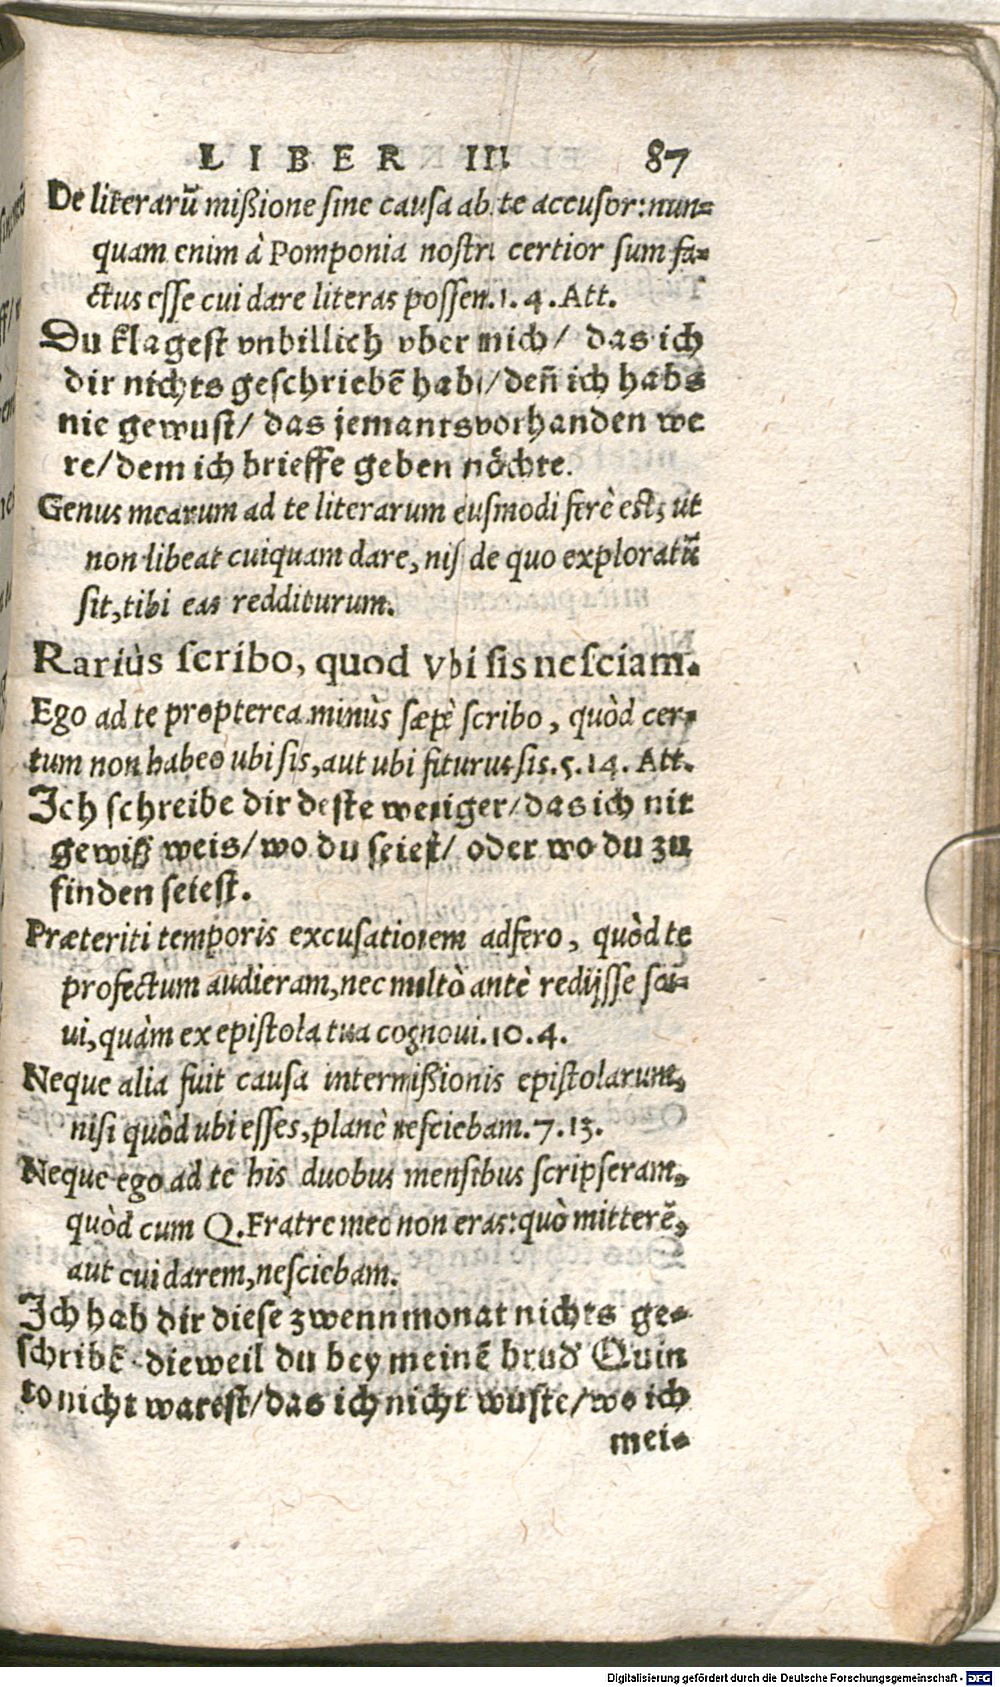 LIBER III. 87
De literarũ mißione ſine cauſa ab te accuſor: nun-
quam enim à Pomponia noſtri certior ſum fa-
ctus eſſe cui dare literas poſſem. 1. 4. Att.
Du klageſt vnbillich vber mich/ das ich
dir nichts geſchriebē hab/ deñ ich habs
nie gewuſt/ das jemants vorhanden we
re/ dem ich brieffe geben möchte.
Genus mearum ad te literarum eiuſmodi ferè eſt, ut
non libeat cuiquam dare, niſi de quo exploratũ
ſit, tibi eas redditurum.
Rariùs ſcribo, quod vbi ſis neſciam.
Ego ad te propterea minùs ſæpè ſcribo, quòd cer-
tum non habeo ubi ſis, aut ubi ſiturus ſis. 5. 14. Att.
Ich ſchreibe dir deſte weniger/ das ich nit
gewiß weis/ wo du ſeieſt/ oder wo du zu
finden ſeieſt.
Præteriti temporis excuſationem adfero, quòd te
profectum audieram, nec multò antè redijſſe ſci-
ui, quàm ex epiſtola tua cognoui. 10. 4.
Neque alia fuit cauſa intermißionis epiſtolarum,
niſi quòd ubi eſſes, planè neſciebam. 7. 13.
Neque ego ad te his duobus menſibus ſcripſeram,
quòd cum Q. Fratre meo non eras: quò mitterē,
aut cui darem, neſciebam.
Ich hab dir dieſe zwenn monat nichts ge-
ſchribē dieweil du bey meinē brud' Quin
to nicht wareſt/ das ich nicht wuſte/ wo ich
mei-
Digitalisierung gefördert durch die Deutsche Forschungsgemeinschaft - DFG